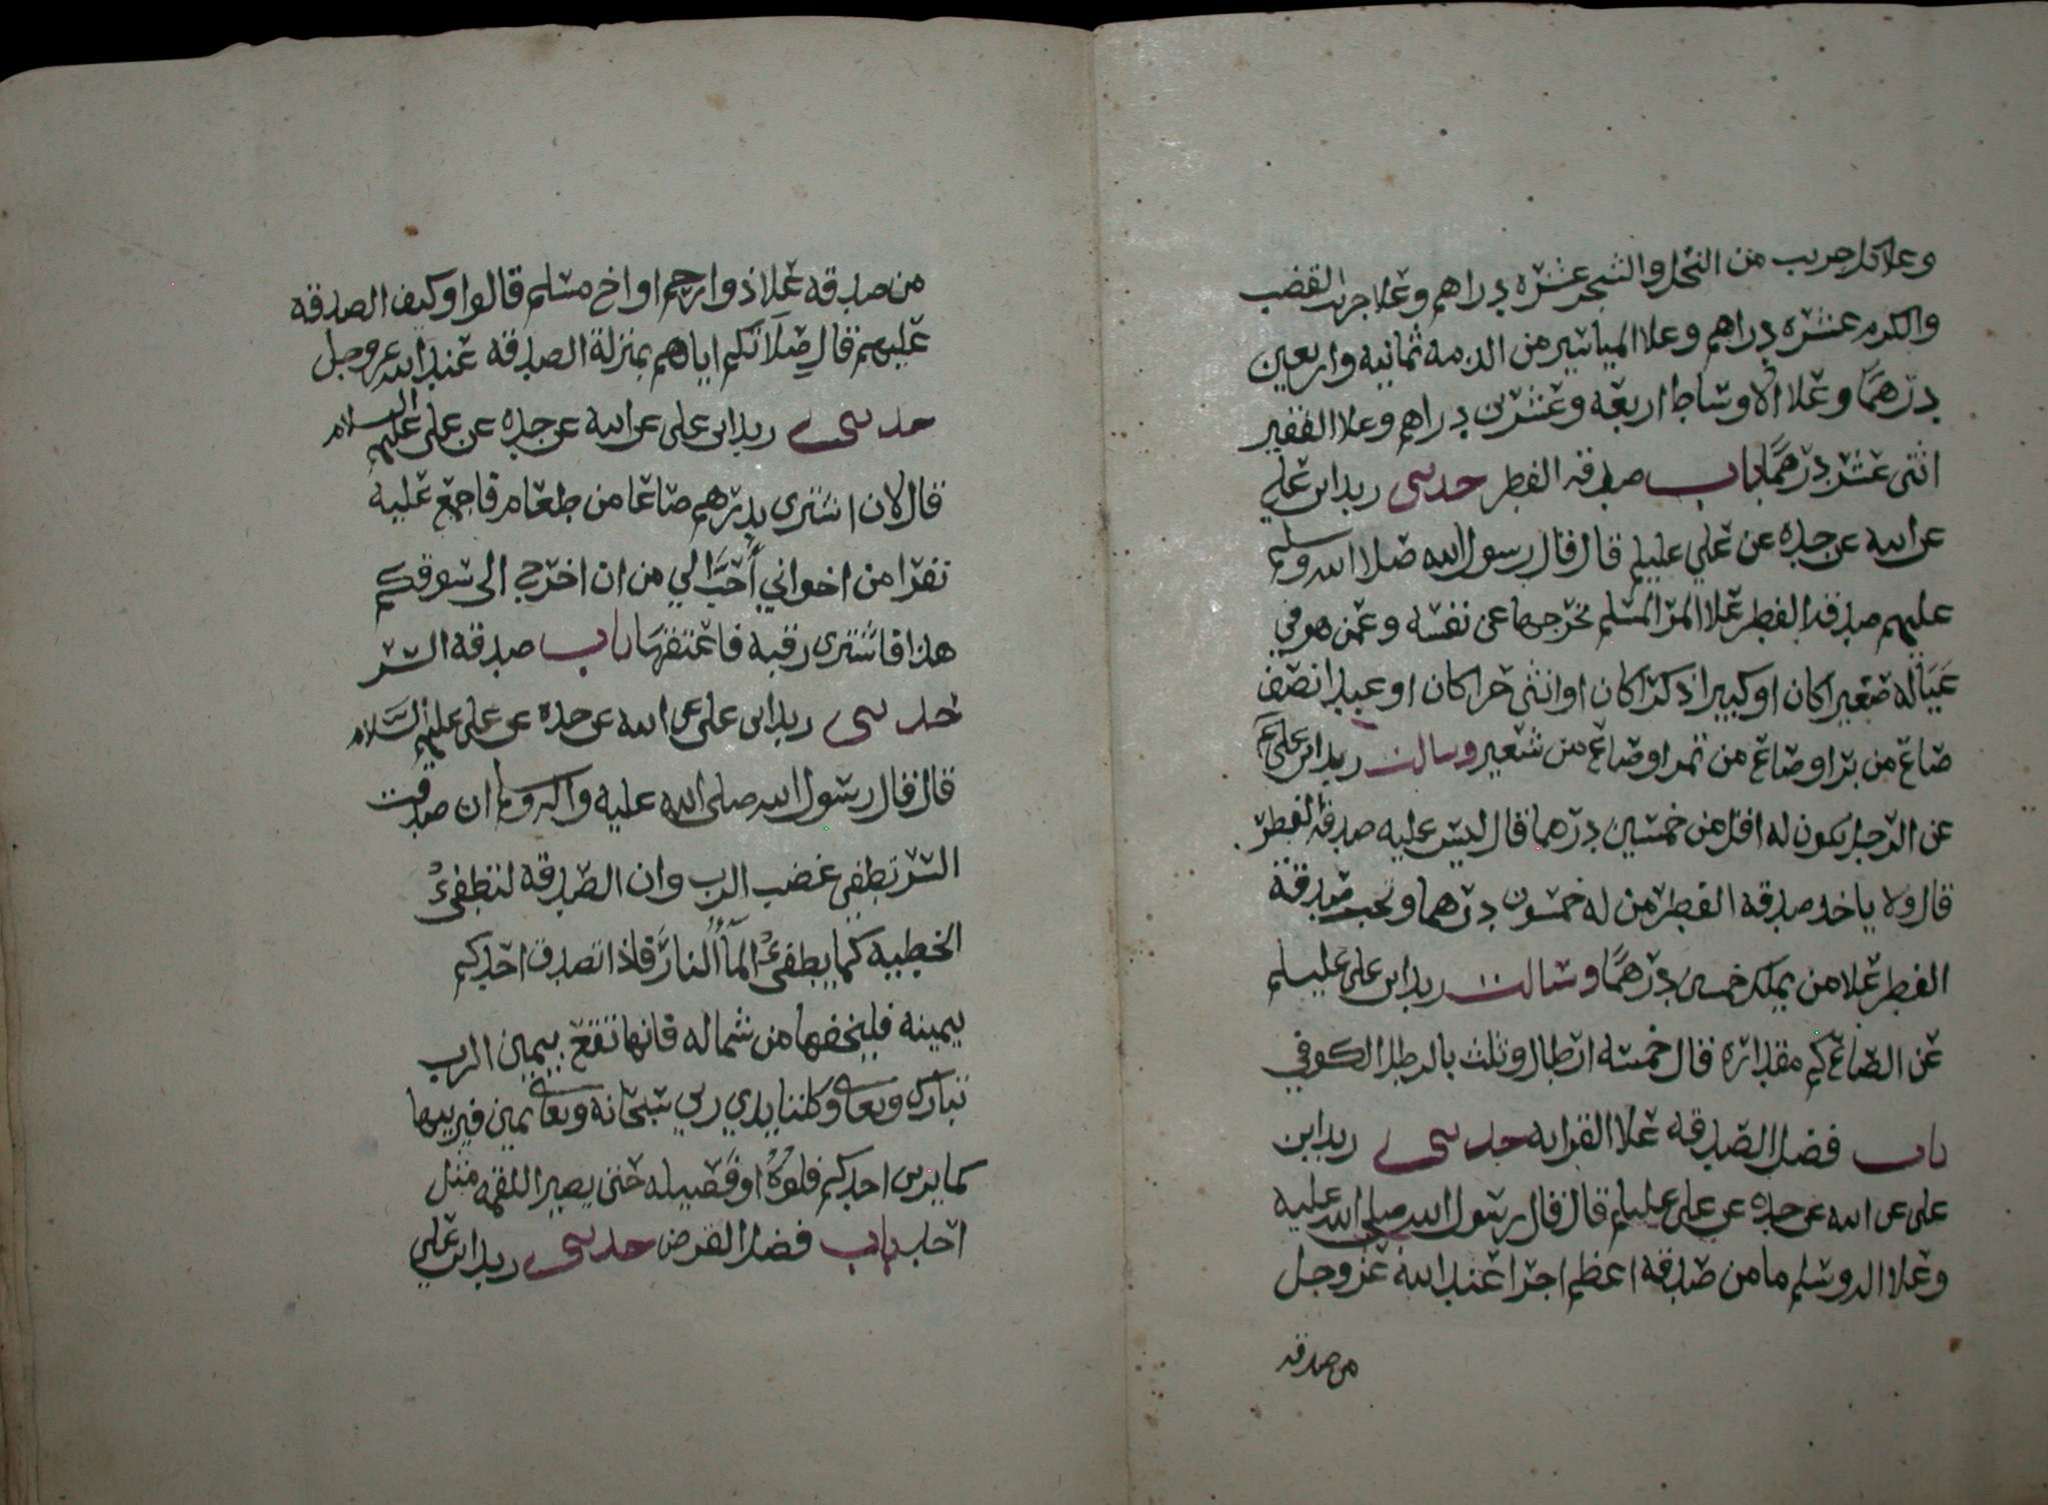 وعلا كل جريب من النخل والشجر عشره دراهم وعلا جريب القضب
والكرم عشره دراهم وعلا المياسير من الذمه ثمانيه واربعين
درهمًا وعلا الاوساط اربعه وعشرين دراهم وعلا الفقير
اثنى عشر درهمًا باب صدقه الفطر حدثنى زيد ابن علي
عن ابيه عن جده عن علي عليلم قال قال رسول الله صلا الله وسلم
عليهم صدقه الفطر علا المر المسلم يخرجها عن نفسه وعمن هو في
عياله صغيرا كان او كبيرا ذكرًا كان او انثى حرا كان او عبدا نصف
صاع من بر او صاع من تمر او صاع من شعير وسالت زيد ابن علي عم
عن الرجل يكون له اقل من خمسين درهما قال ليس عليه صدقه الفطر
قال ولا ياخد صدقه الفطر من له خمسون درهما وتجب صدقة
الفطر علا من يملك خمسين درهمًا وسالت زيد ابن على عليلم
عن الصاع كم مقداره قال خمسه ارطال وثلث بالرطل الكوفي
باب فضل الصدقه علا القرابه حدثنى زيد ابن
على عن ابيه عن جده عن على عليلم قال قال رسول الله صلى الله عليه
وعلا اله وسلم ما من صدقه اعظم اجرا عند الله عز وجل
من صدقه
من صدقه علا ذوا رحم او اخ مسلم قالوا وكيف الصدقه
عليهم قال صلاتكم اياهم بمنزلة الصدقه عند الله عز وجل
حدثنى زيد ابن على عن ابيه عن جده عن على عليهم السلام
قال لان اشترى بدرهم صاعا من طعام فاجمع عليه
نفرا من اخواني أحبَّ الي من ان اخرج الى سوقكم
هذا فاشترى رقبه فاعتقها باب صدقه السر
حدثنى زيد ابن على عن ابيه عن جده عن على عليهم السلام
قال قال رسول الله صلى الله عليه واله وسلم ان صدقت
السر تطفى غضب الرب وان الصدقه لتطفئ
الخطييه كما يطفئ المآ النار فاذا تصدق احدكم
بيمينه فليخفها من شماله فانها تقع بيمين الرب
تبارك وتعالى وكلتا يدي ربي سبحانه وتعالى يمين فيربيها
كما يربى احدكم فلوه او فصيله حتى يصير اللقمه مثل
احد باب فضل القرض حدثنى زيد ابن علي